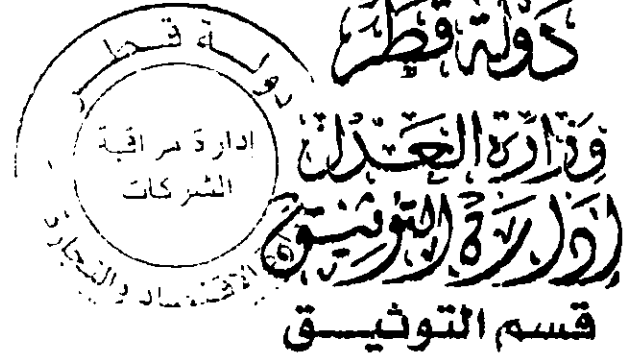 دولة قطر
وزارة العدل
إدارة التوثيق
قسم التوثيـــق
دولة قطر
إدارة مراقبة
الشركات
الاقتصاد والتجارة